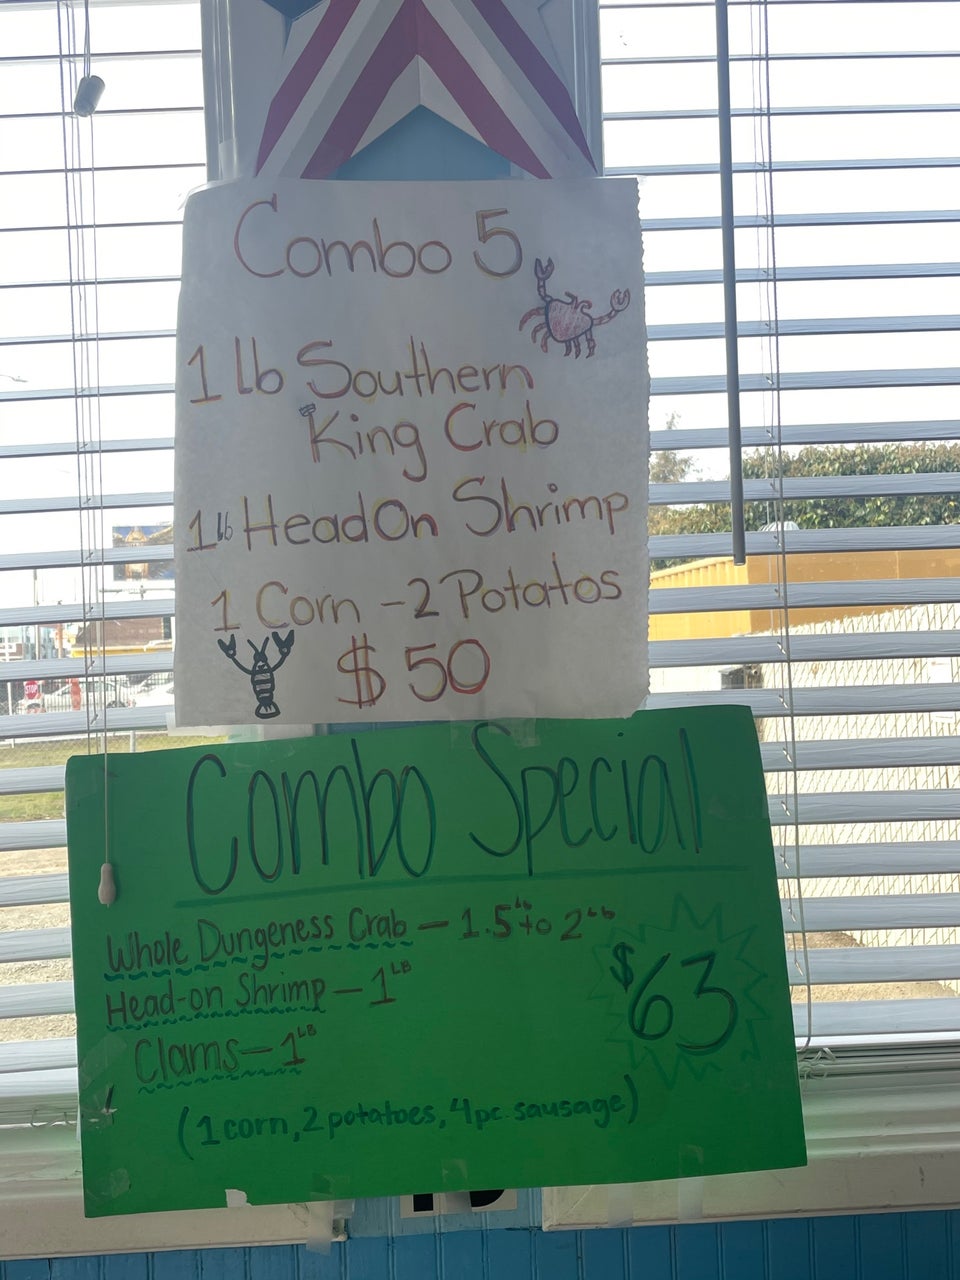 Combo 5
1 lb Southern
King Crab
1 lb Head On Shrimp
1 Corn - 2 Potatos
$50
Combo Special
Whole Dungeness Crab - 1.5 Lb to 2 Lb
Head-on Shrimp - 1 LB
$63
Clams - 1 LB
(1 corn, 2 potatoes, 4 pc. sausage)